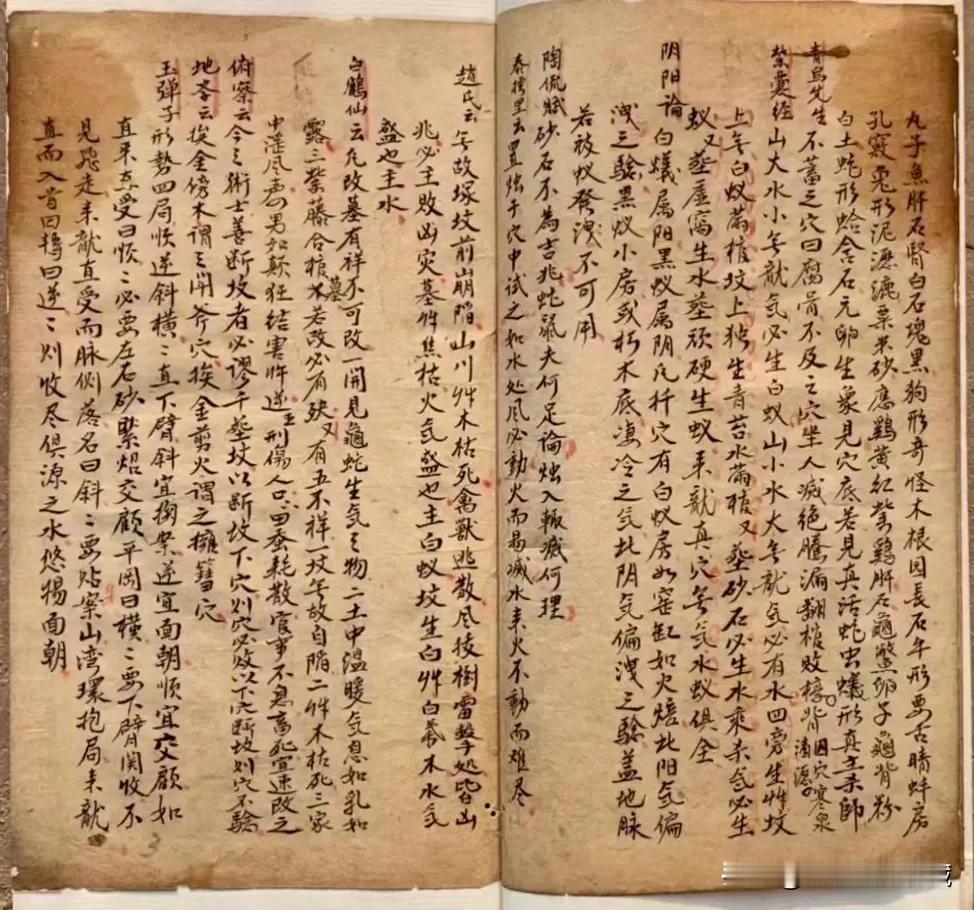 丸子魚肝石腎白石塊黑狗形奇怪木根図長石年形要舌暗蚌房
孔竅兎形泥瀌漉栗米砂應鷄黄紅紫鷄肝石龜鱉卵子龜背粉
白土蛇形蛤含石元卵生象見穴底若見真活蛇虫蟻形真主宗師
青烏先生 不蓄之穴曰腐骨不及之穴坐人滅絶騰漏翻棺敗槨背囯穴寒泉滴瀝子
紫囊经 山大水小无龍気必生白蚁山小水大无龍气必有水四旁生艸坟
上无白蚁蔭棺坟上独生青苔水蔭棺又塟砂石必生水乘杀气必生
蚁又塟虛窩生水塟頑硬生蚁来龍真穴无气水蚁俱全
阴阳论 白蟻属阳黑蚁属阴凡扦穴有白蚁房如窑缸如火焙此阳気偏
洩之驗黑蚁小房或朽木底凍冷之気此阴気偏洩之驗盖地脉
若被蚁發洩不可用
陶侃賦砂石不為吉兆蛇鼠夫何足論烛入輙滅何理
泰摴里云置烛于穴中试之如水处风必動火而易滅水来火不動而难尽
趙氏云 无故塚坟前崩陷山川艸木枯死禽獸逃散风㥄樹雷擊処皆凶
兆必主敗凶灾墓艸焦枯火気盛也主白蚁坟生白艸白慕木水気
盛也主水
白鶴仙云凡改墓有祥不可改一開見龜蛇生気之物二土中温暖气息如乳如
露三紫藤合棺木若改墓必有殃又有五不祥一坟无故自陷二艸木枯死三家
中淫风秀男如颠狂结害忤逆主刑傷人口四蚕耗散官事不息畜死宜速改之
俯察云今之術士善断坟者必谬于塟坟以断坟下穴则穴必败以下穴断坟则穴不驗
地李云挨金傍木谓之開斧穴挨金剪火谓之擁篲穴
玉彈子形勢四局順逆斜横二直下臂斜宜掬案逆宜面朝順宜交顧如
直来直受曰順二必要左右砂緊炤交顧平岡曰横二要下臂関收不
見飛走来龍直受而脉侧落名曰斜二要贴案山湾環抱局来龍
直而入首曰轉曰逆二则收尽俱源之水悠揚面朝